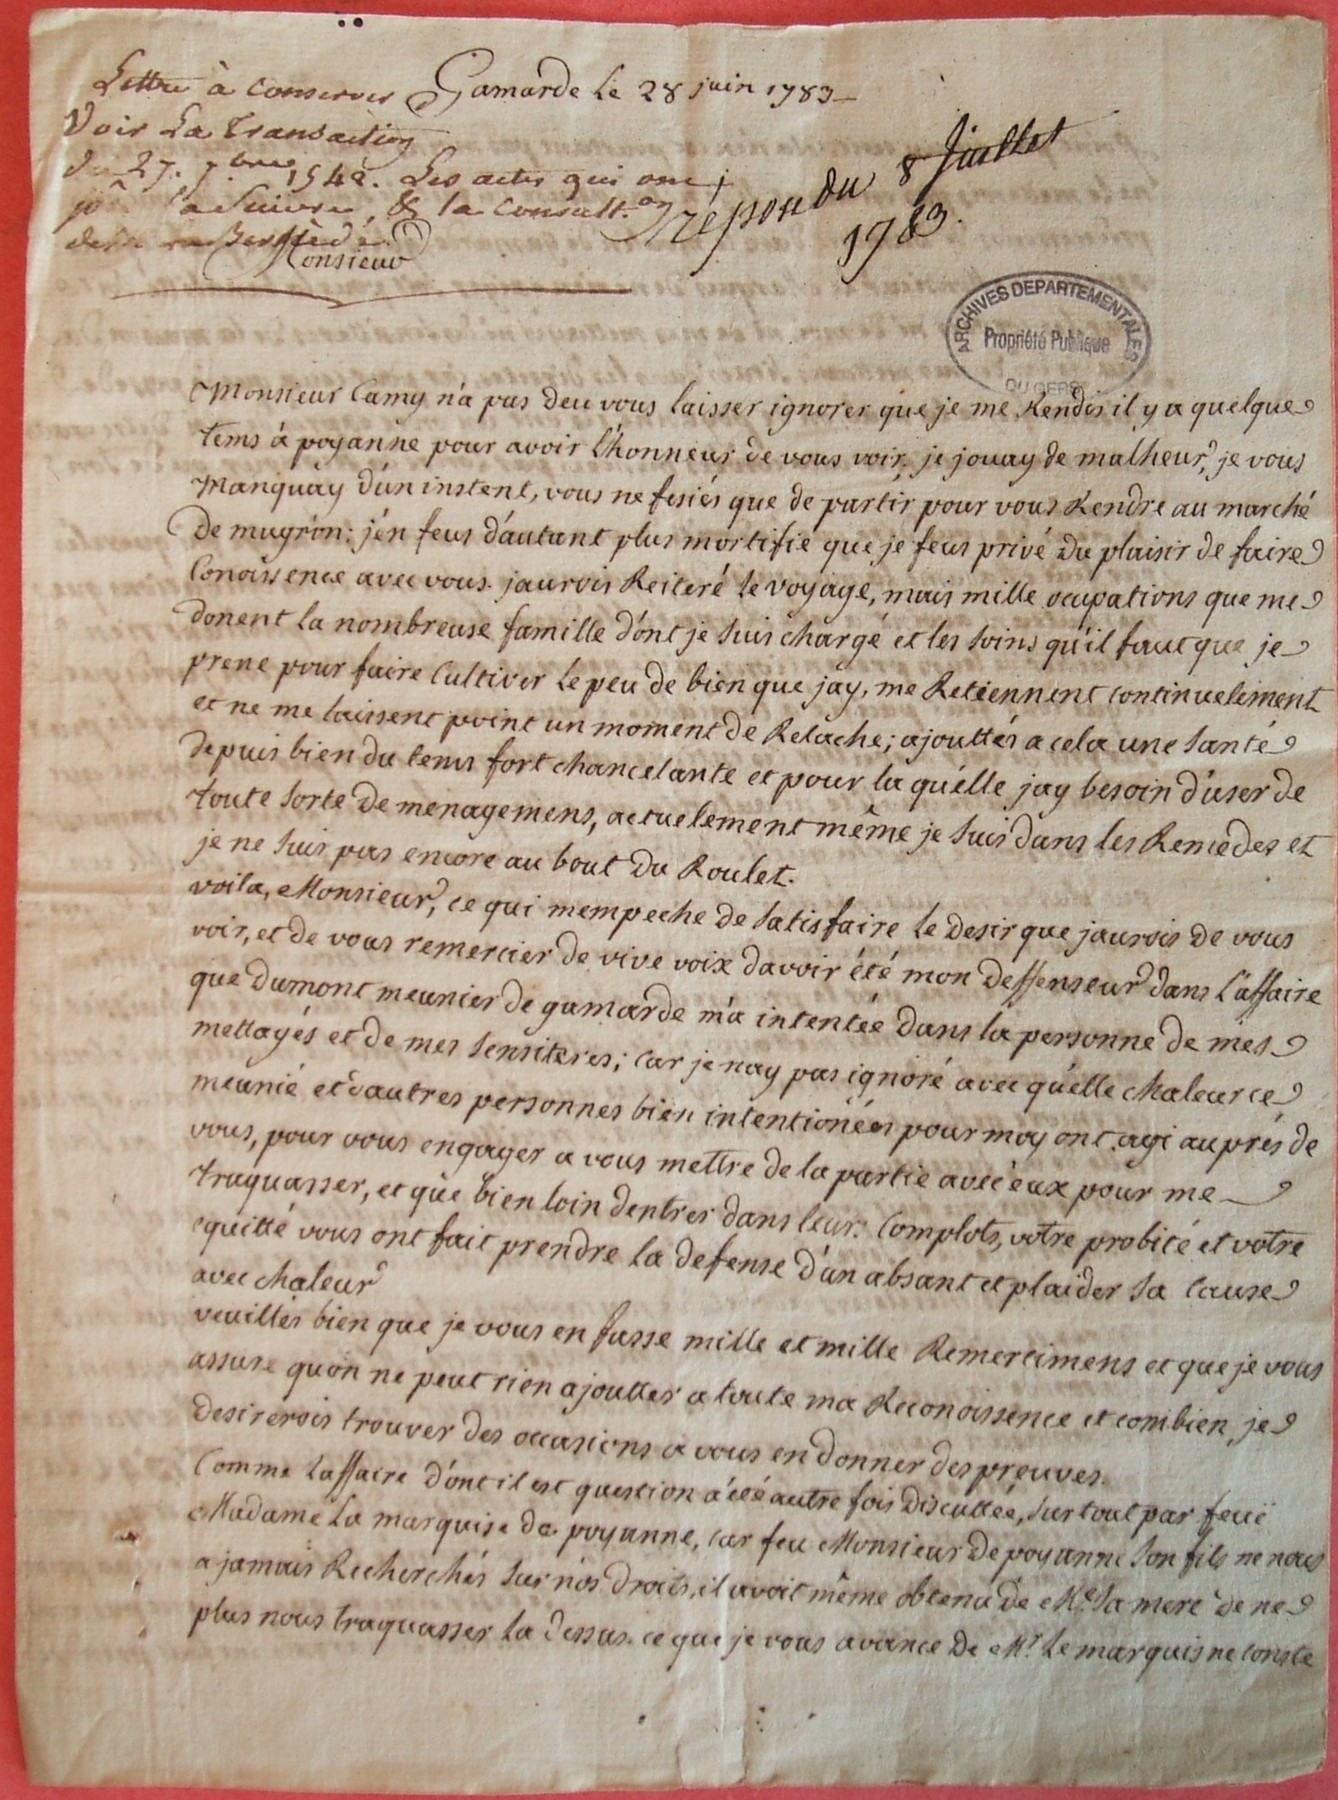 Lettre à conserver
Gamarde le 28 juin 1783
Voir La transaction
du 27. 7.bre 1542. Les actes qui ont
a Suivre, & la Consult.on
répondu 8 Juillet
1783.
Monsieur
ARCHIVES DEPARTEMENTALES
Propriété Publique
DU GERS
Monsieur Camy n'a pas deu vous laisser ignorer que je me Rendis il y a quelque
tems à poyanne pour avoir l'honneur de vous voir. je jouay de malheur, je vous
Manquay d'un instent, vous ne fesiés que de partir pour vous Rendre au marché
De mugron: j'en feus d'autant plus mortifié que je feus privé du plaisir de faire
Conoissence avec vous. jaurois Reiteré le voyage, mais mille ocupations que me
donent la nombreuse famille d'ont je suis chargé et les soins qu'il faut que je
prene pour faire Cultiver le peu de bien que jay, me Retiennent continuelement
et ne me laissent point un moment de Relache; ajouttés a cela une santé
depuis bien du tems fort chancelante et pour la qu'elle jay besoin d'user de
toute sorte de menagemens, actuelement même je suis dans les Remedes et
je ne suis pas encore au bout du Roulet.
voila, Monsieur, ce qui mempeche de satisfaire le desir que jaurois de vous
voir, et de vous remercier de vive voix davoir été mon deffenseur dans l'affaire
que dumont meunier de gamarde m'a intentée dans la personne de mes
mettayés et de mes sensiteres; car je nay pas ignoré avec qu'elle chaleur ce
meunié et d'autres personnes bien intentionées pour moy ont agi auprés de
vous, pour vous engager a vous mettre de la partie avec eux pour me
traquasser, et que bien loin dentrer dans leurs Complots, votre probité et votre
equitté vous ont fait prendre la defense d'un absant et plaider sa Cause
avec chaleur
veuillés bien que je vous en fasse mille et mille Remercimens et que je vous
assure qu'on ne peut rien ajoutter a toute ma Reconoissence et combien je
desirerois trouver des occasions a vous en donner des preuves.
Comme l'affaire d'ont il est question a été autre fois discuttée, sur tout par feue
Madame La marquise de poyanne, car feu Monsieur de poyanne son fils ne nous
a jamais Recherchés sur nos droits, il avoit même obtenu de Me. sa mere de ne
plus nous traquasser la dessus. ce que je vous avance de Mr. Le marquis ne conste